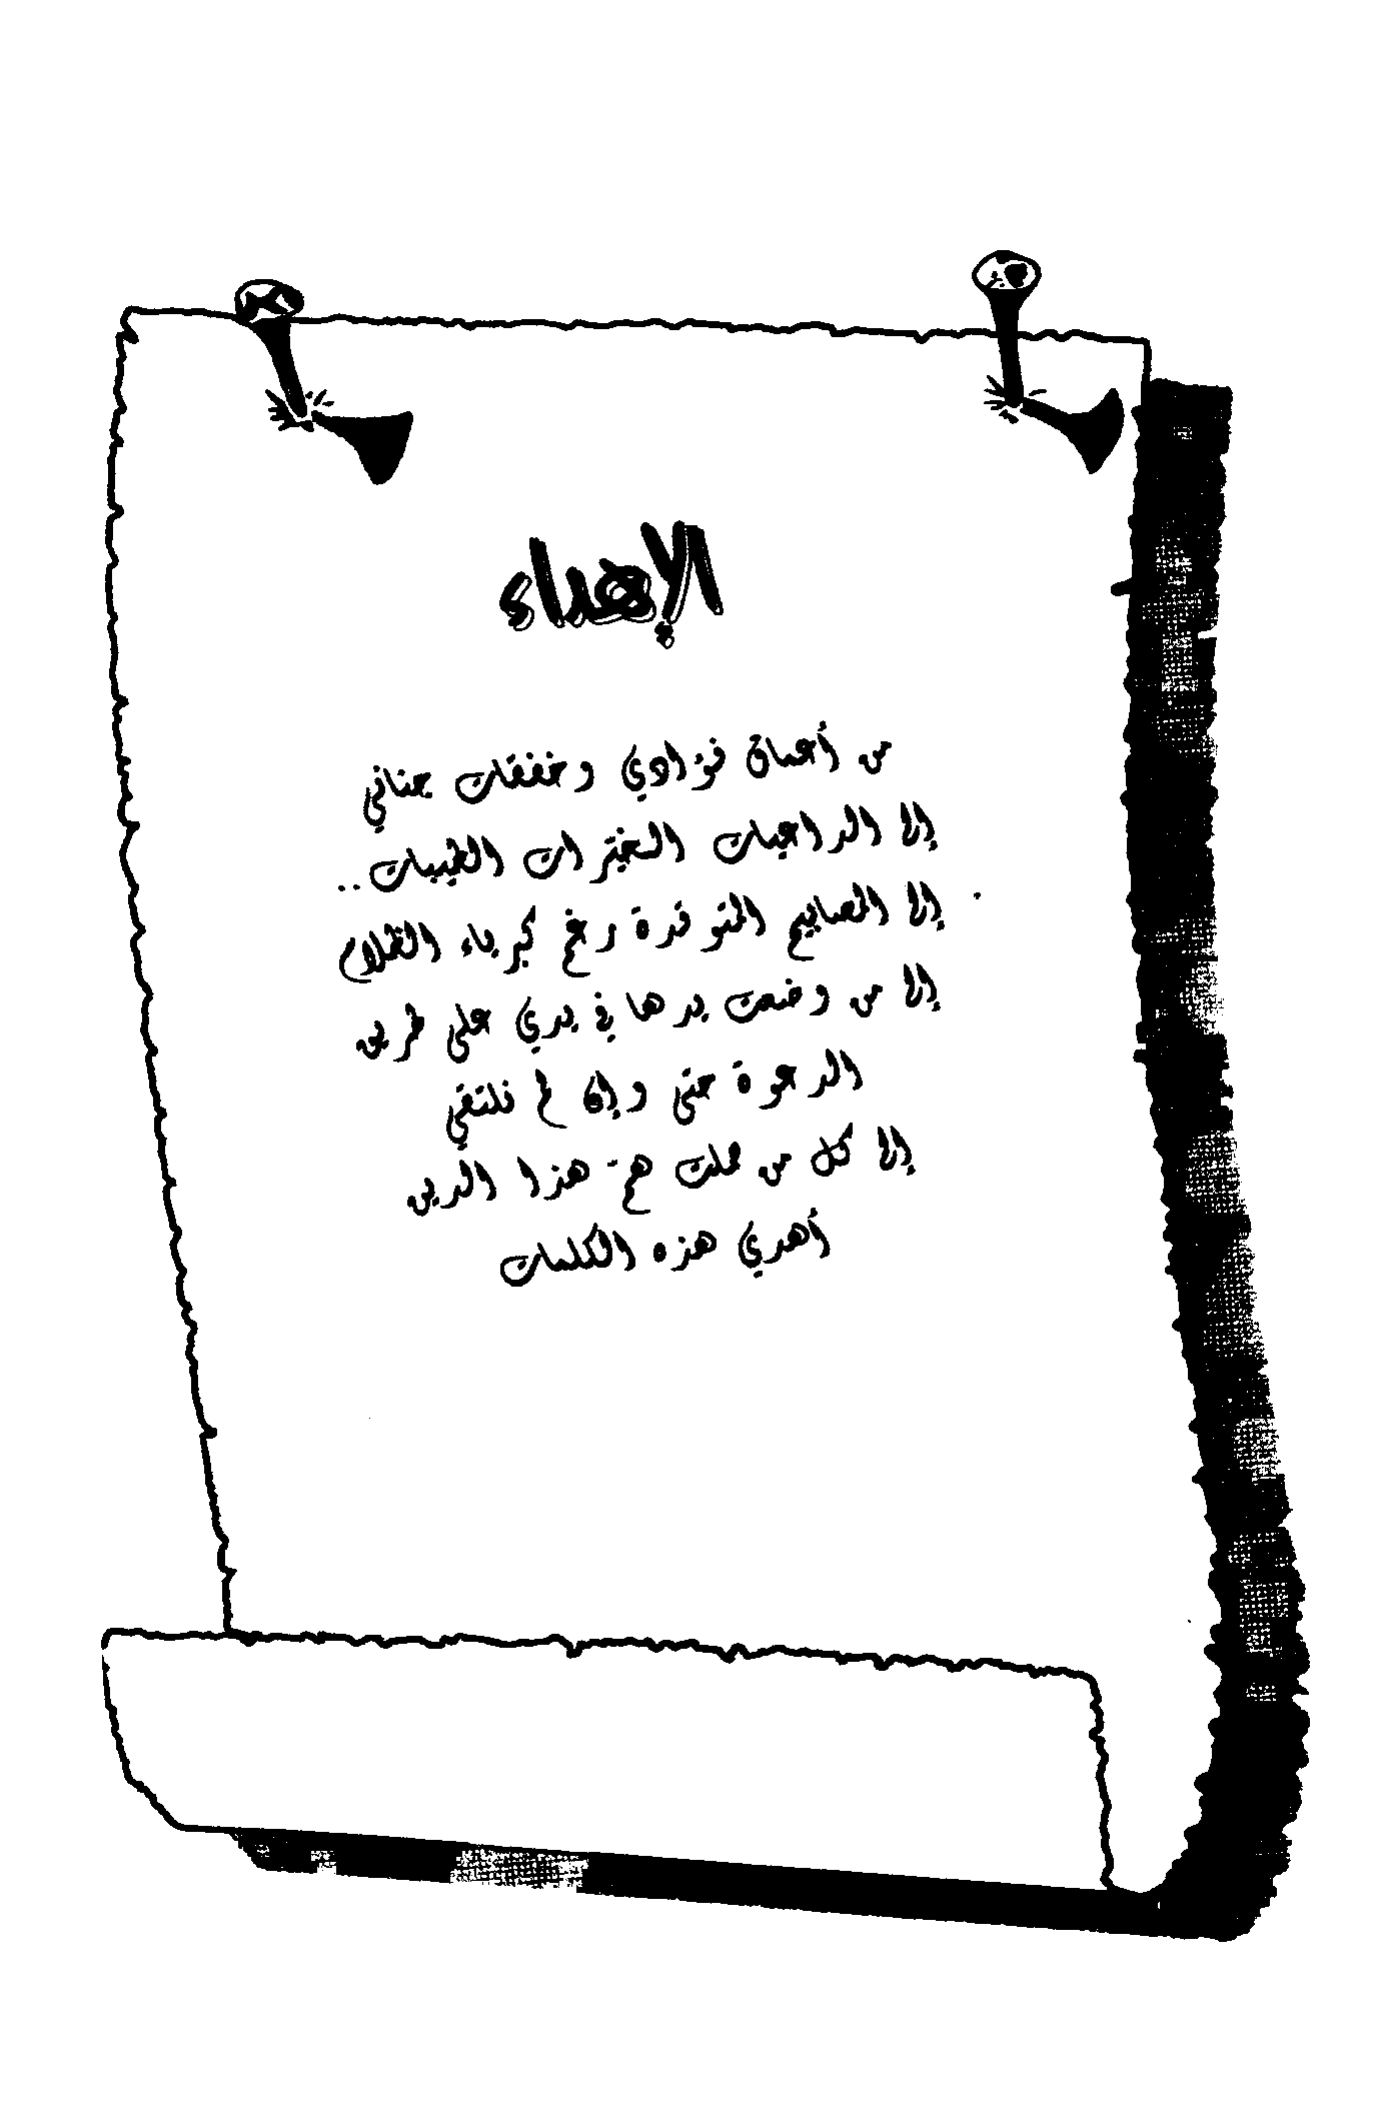 الإهداء
من أعماق فؤادي وخفقات جناني
إلى الداعيات الخيّرات الطيبات..
إلى المصابيح المتوقدة رغم كبرياء الظلام
إلى من وضعت يدها في يدي على طريق
الدعوة حتى وإن لم نلتقي
إلى كل من حملت همّ هذا الدين
أهدي هذه الكلمات